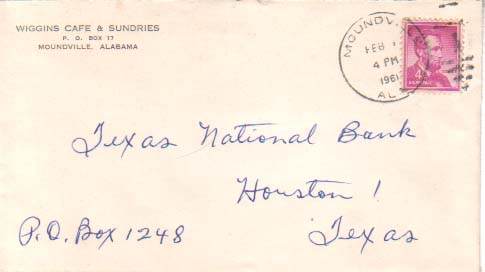 WIGGINS CAFE & SUNDRIES
P. O. BOX 17
MOUNDVILLE, ALABAMA
MOUNDV
FEB
4 PM
1961
AL
4¢
Texas National Bank
Houston 1
P.O. Box 1248 Texas